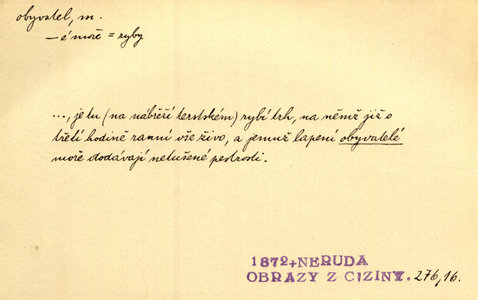 obyvatel, m.
— é moře = ryby
..., je tu (na nábřeží terstském) rybí trh, na němž již o
třetí hodině ranní vše živo, a jemuž lapení obyvatelé
moře dodávají netušené pestrosti.
1872+NERUDA
OBRAZY Z CIZINY. 276,16.